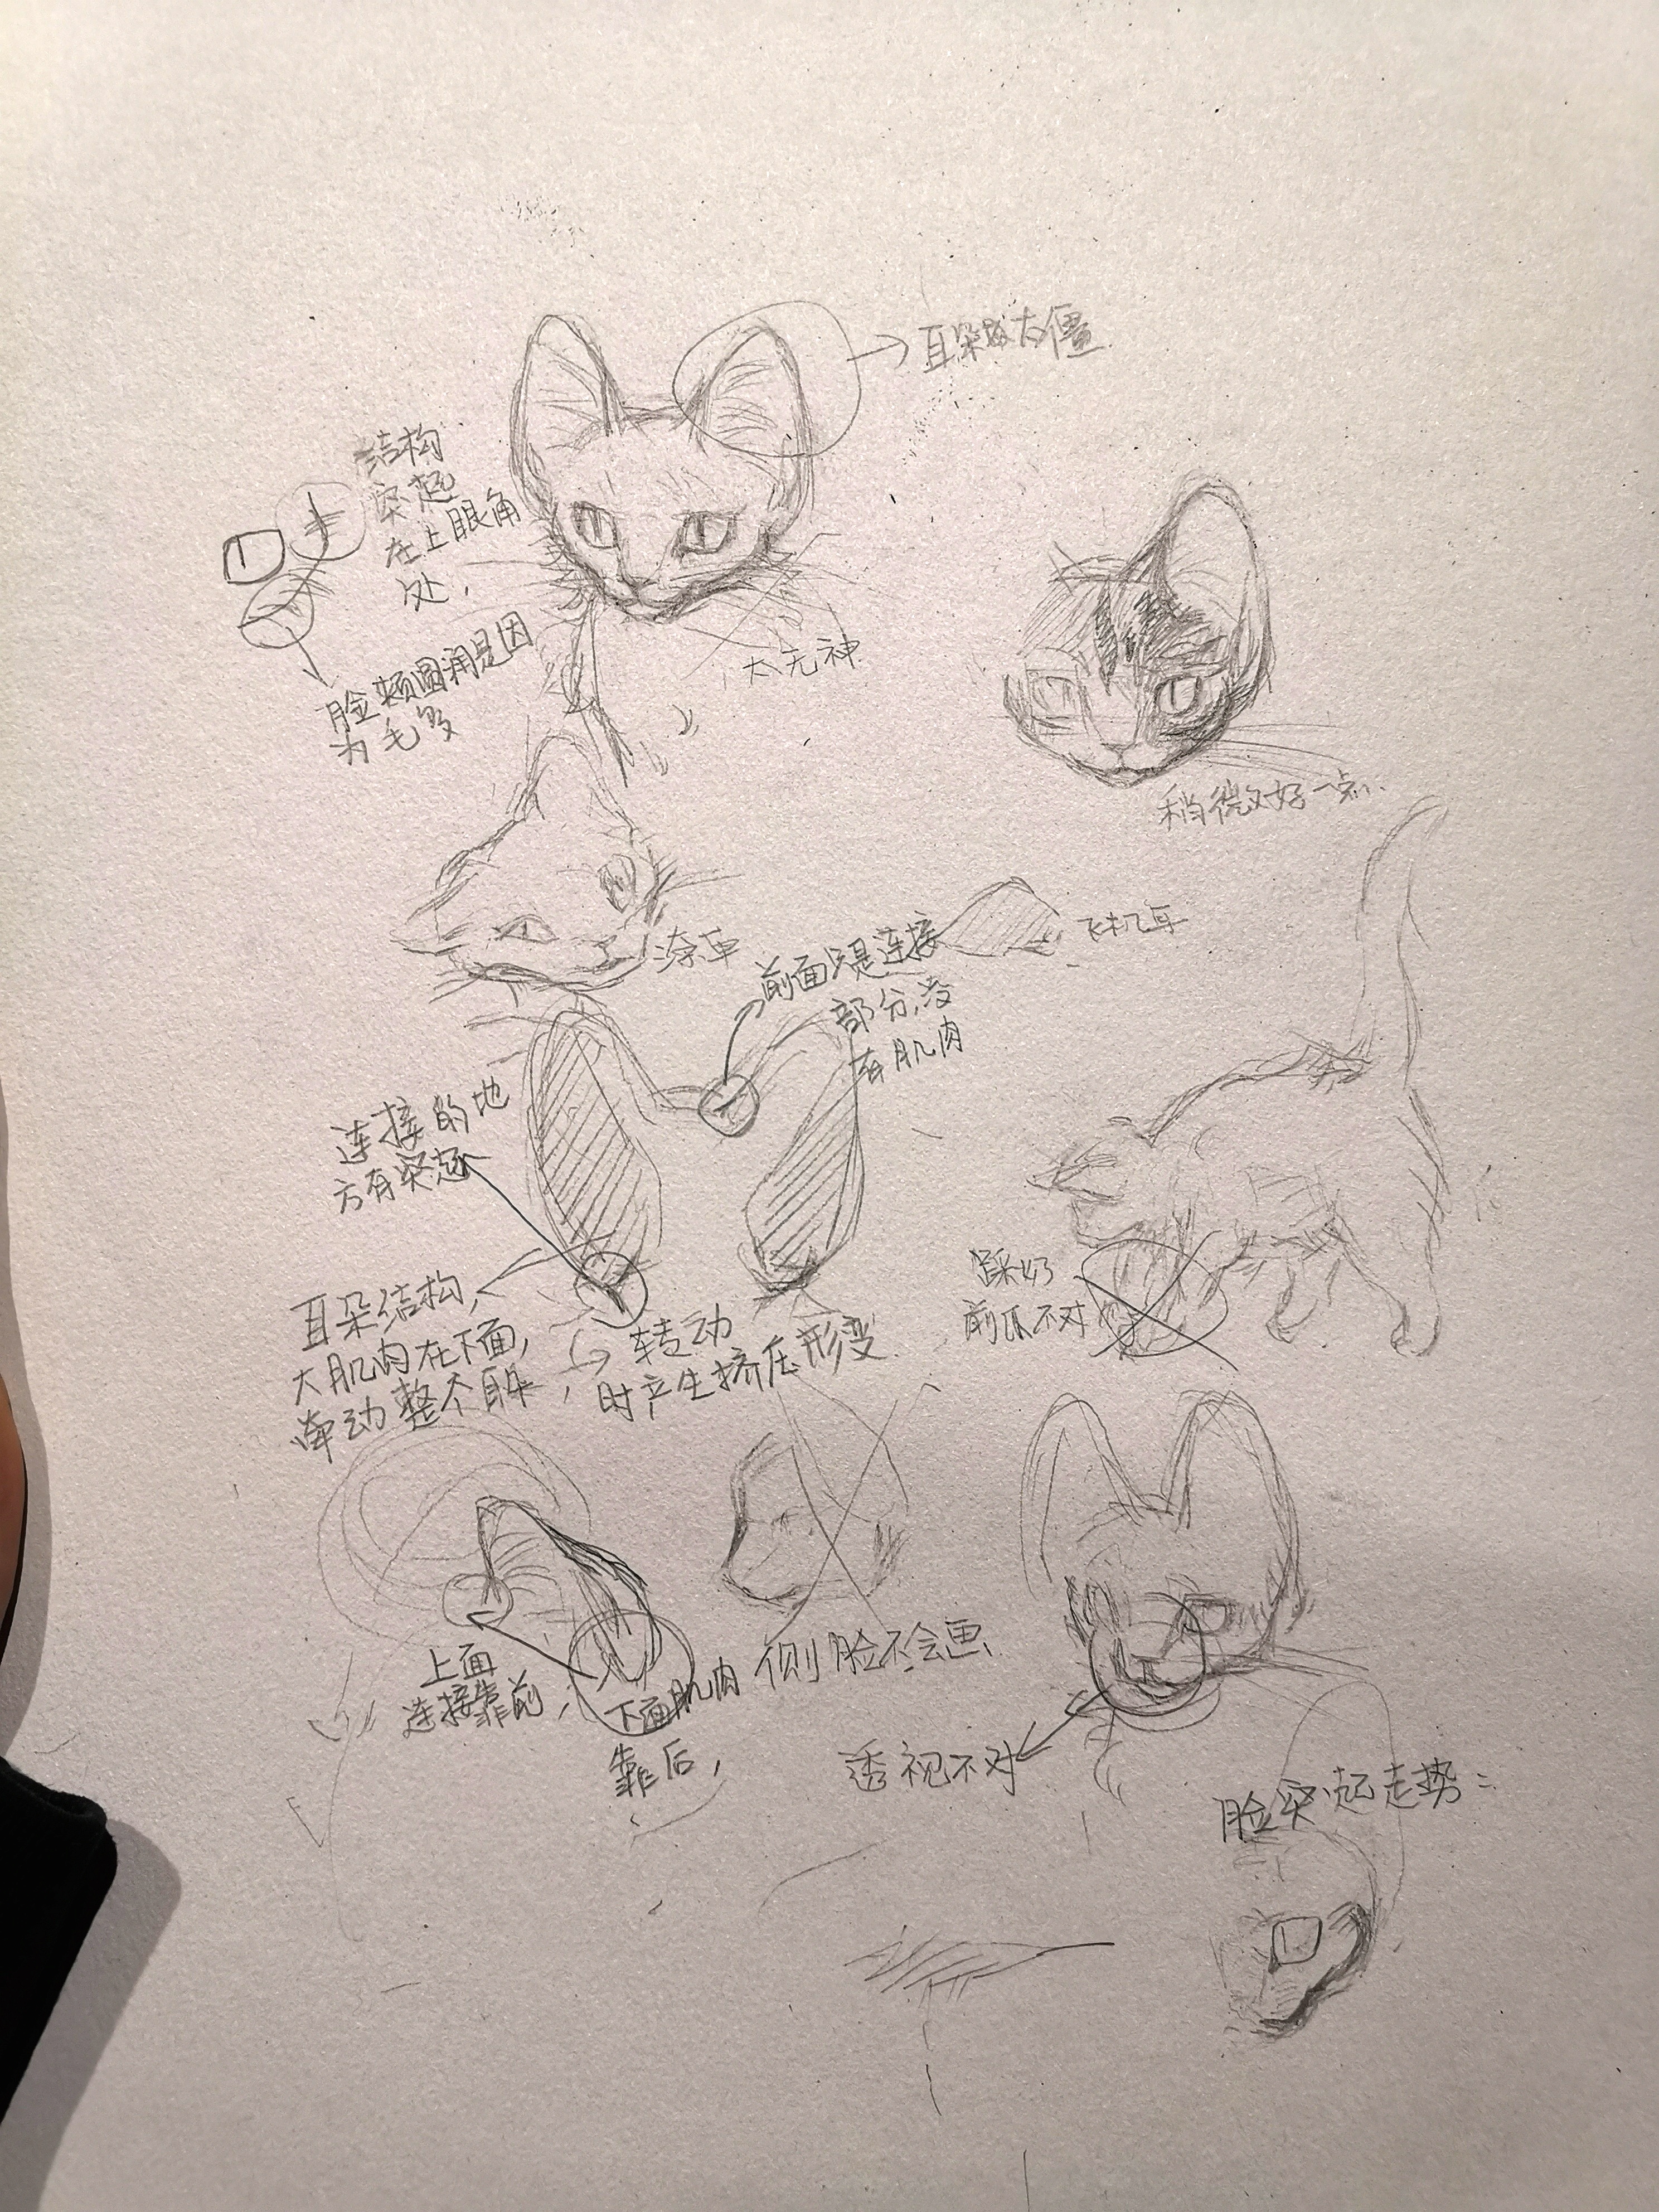 耳朵太僵
结构
突起
在上眼角
处，
脸颊圆润是因
为毛多
太无神
稍微好一点
飞机耳
前面只是连接
部分，没
有肌肉
连接的地
方有突起
耳朵结构，
大肌肉在下面，
牵动整个耳朵，
转动
时产生挤压形变
踩奶
前爪不对
上面
连接靠前，
下面肌肉
靠后，
侧脸不会画
透视不对
脸突起走势：